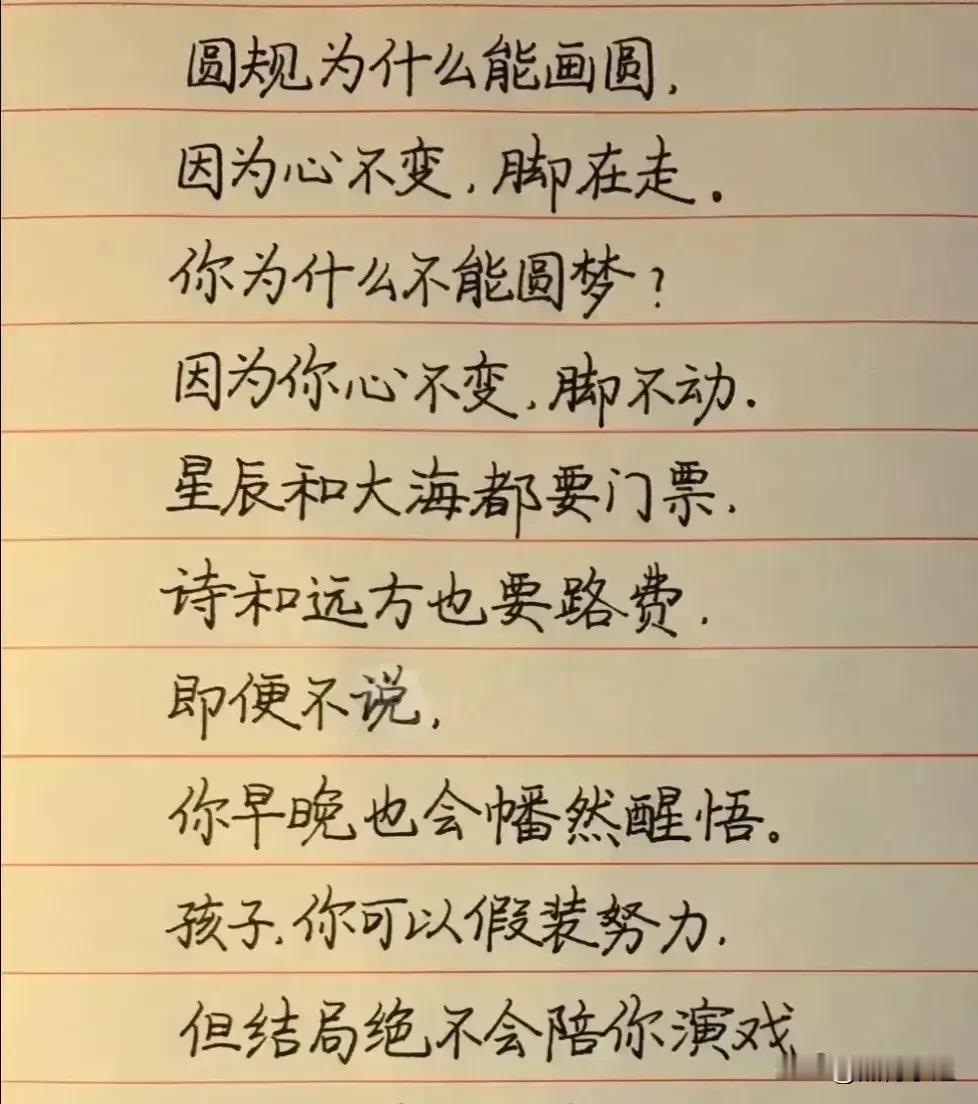 圆规为什么能画圆,
因为心不变,脚在走.
你为什么不能圆梦?
因为你心不变,脚不动.
星辰和大海都要门票.
诗和远方也要路费.
即便不说,
你早晚也会幡然醒悟。
孩子.你可以假装努力.
但结局绝不会陪你演戏